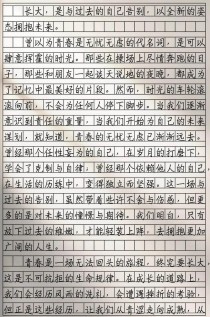 长大，是与过去的自己告别，以全新的姿
态拥抱未来。
曾以为青春是无忧无虑的代名词，是可以
肆意挥霍的时光。那些在操场上尽情奔跑的日
子，那些和朋友一起谈天说地的夜晚，都成为
了记忆中最美好的片段。然而，时光的车轮滚
滚向前，不会为任何人停下脚步。当我们逐渐
意识到责任的重量，当我们开始为自己的未来
谋划，就知道，青春的无忧无虑已渐渐远去。
曾经那个任性妄为的自己，在岁月的打磨下，
学会了克制与自律。曾经那个依赖他人的自己，
在生活的历练中，变得独立而坚强。这一场与
过去的告别，虽然带着些许不舍与伤感，但更
多的是对未来的憧憬与期待。我们明白，只有
放下过去的枷锁，才能轻装上阵，去拥抱更加
广阔的人生。
青春是一场无法回头的旅程，终究要长大，
这是不可抗拒的生命规律。在成长的道路上，
我们会经历风雨的洗礼，会遭遇挫折的考验，
但正是这些经历，让我们从青涩走向成熟，从